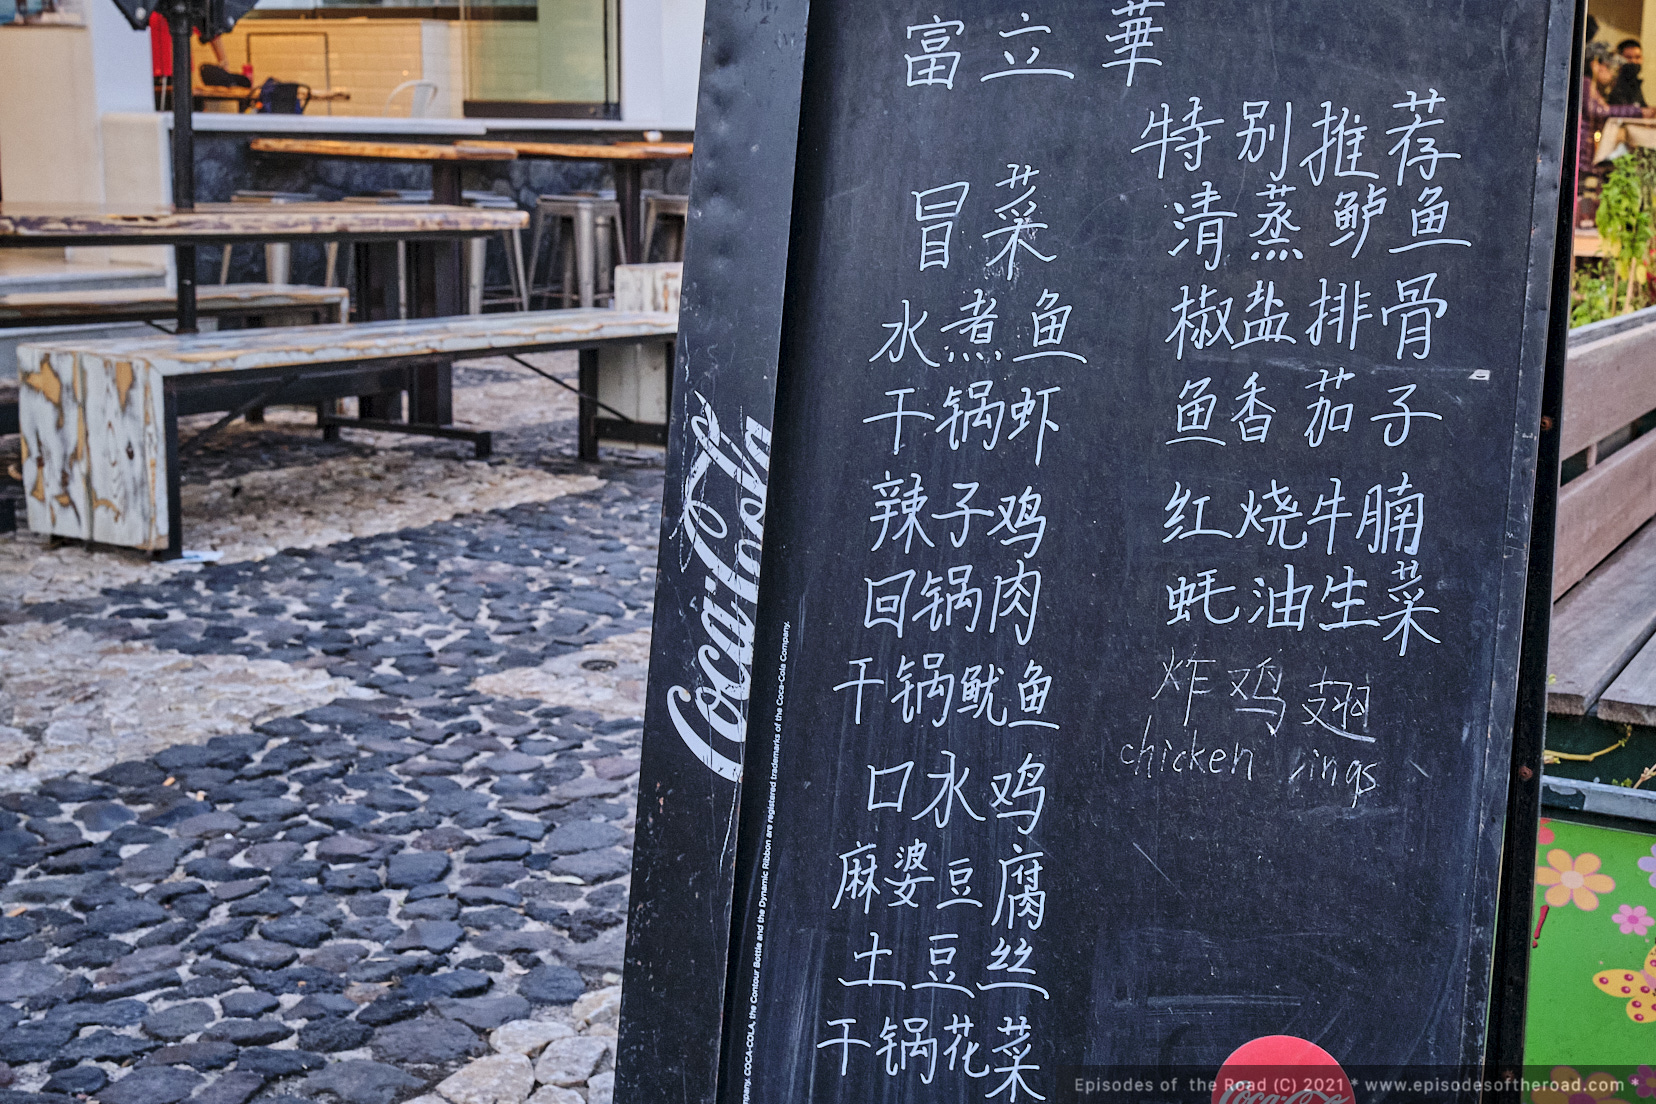 富立華
冒菜
水煮鱼
干锅虾
辣子鸡
回锅肉
干锅鱿鱼
口水鸡
麻婆豆腐
土豆丝
干锅花菜
特别推荐
清蒸鲈鱼
椒盐排骨
鱼香茄子
红烧牛腩
蚝油生菜
炸鸡翅
chicken ings
Coca-Cola
mpany. COCA-COLA, the Contour Bottle and the Dynamic Ribbon are registered trademarks of the Coca-Cola Company.
Coca-Cola
Episodes of the Road (C) 2021 * www.episodesoftheroad.com *